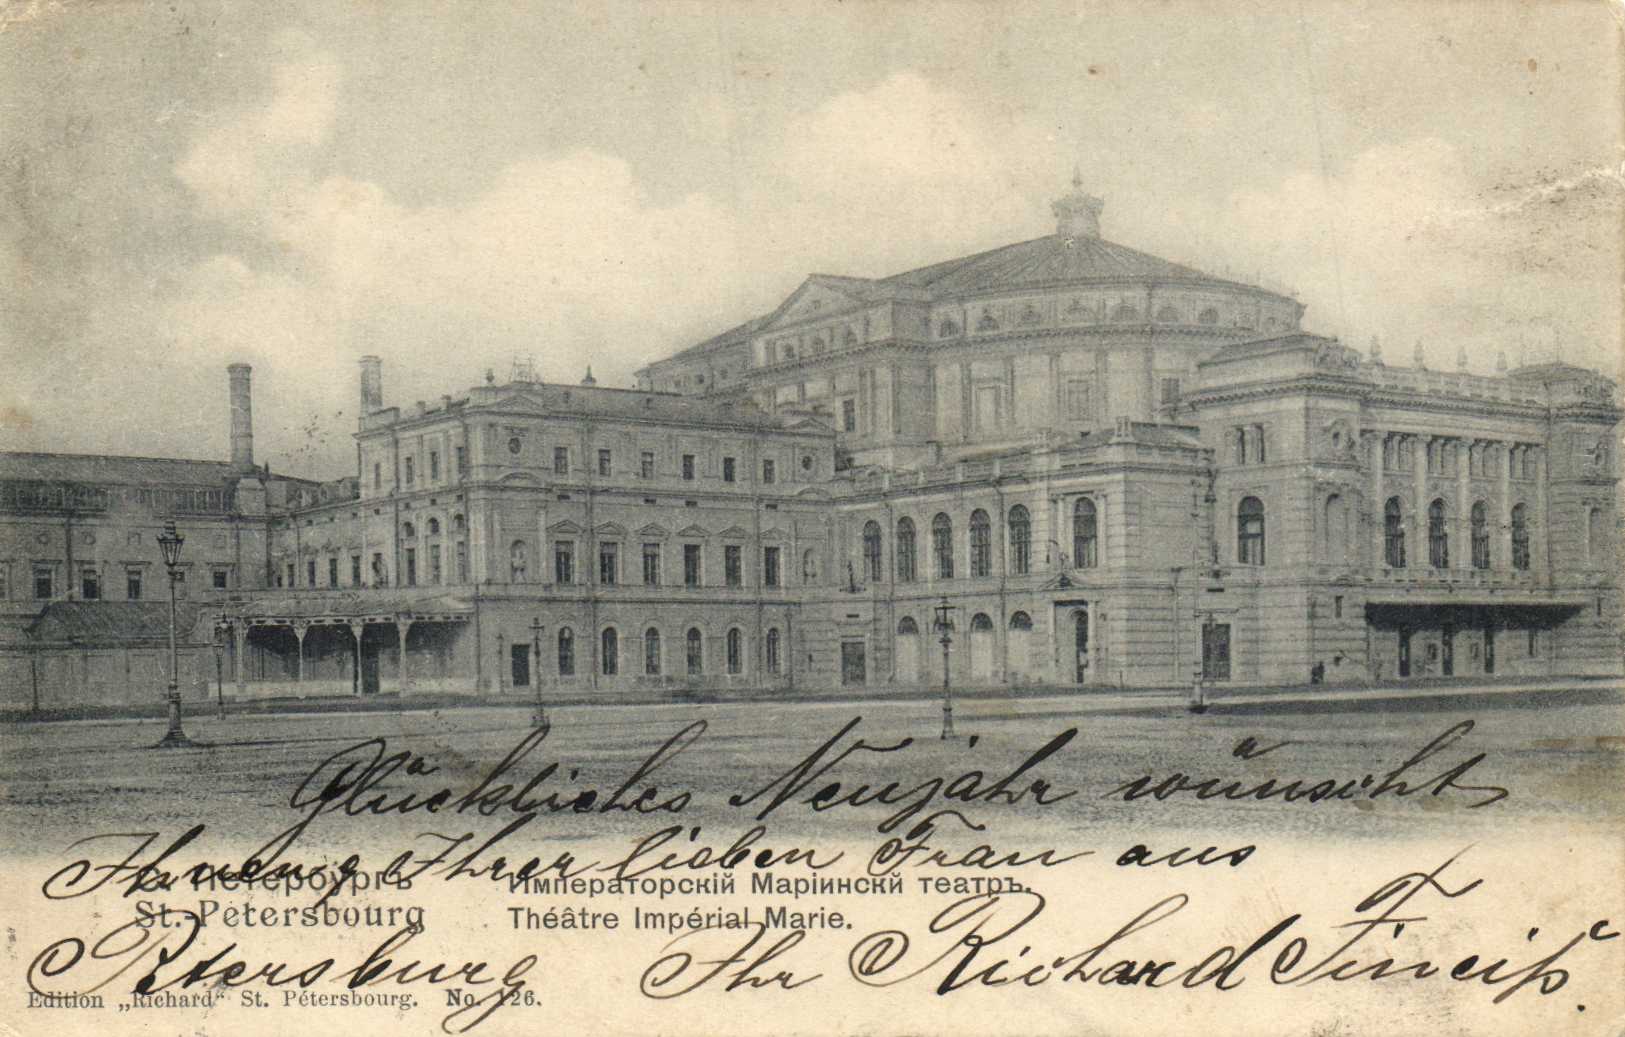 Glückliches Neujahr wünscht
Ihnen u. Ihrer lieben Frau aus
Petersburg Ihr Richard
С. Петербургъ
St.-Pétersbourg
Императорскій Маріинскй театръ.
Théâtre Impérial Marie.
Edition „Richard“ St. Pétersbourg. No. 126.